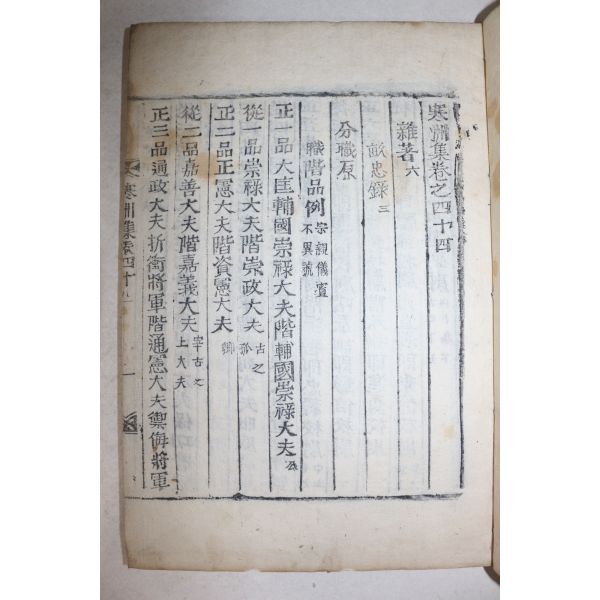 寒洲集卷之四十四
雜著 六
畝忠錄 三
分職原
職階品例 宗親儀賓不異號
正一品大匡輔國崇祿大夫階輔國崇祿大夫 公
從一品崇祿大夫階崇政大夫 古之孤
正二品正憲大夫階資憲大夫 卿
從二品嘉善大夫階嘉義大夫 古之上大夫
正三品通政大夫折衝將軍階通憲大夫禦侮將軍
寒洲集卷四十